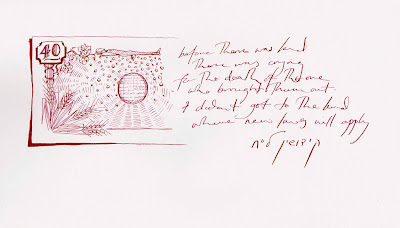 40
before there was land
there was crying
for the death of the one
who brought them out
& didn't get to the land
where new laws will apply
קידושין ל״ח